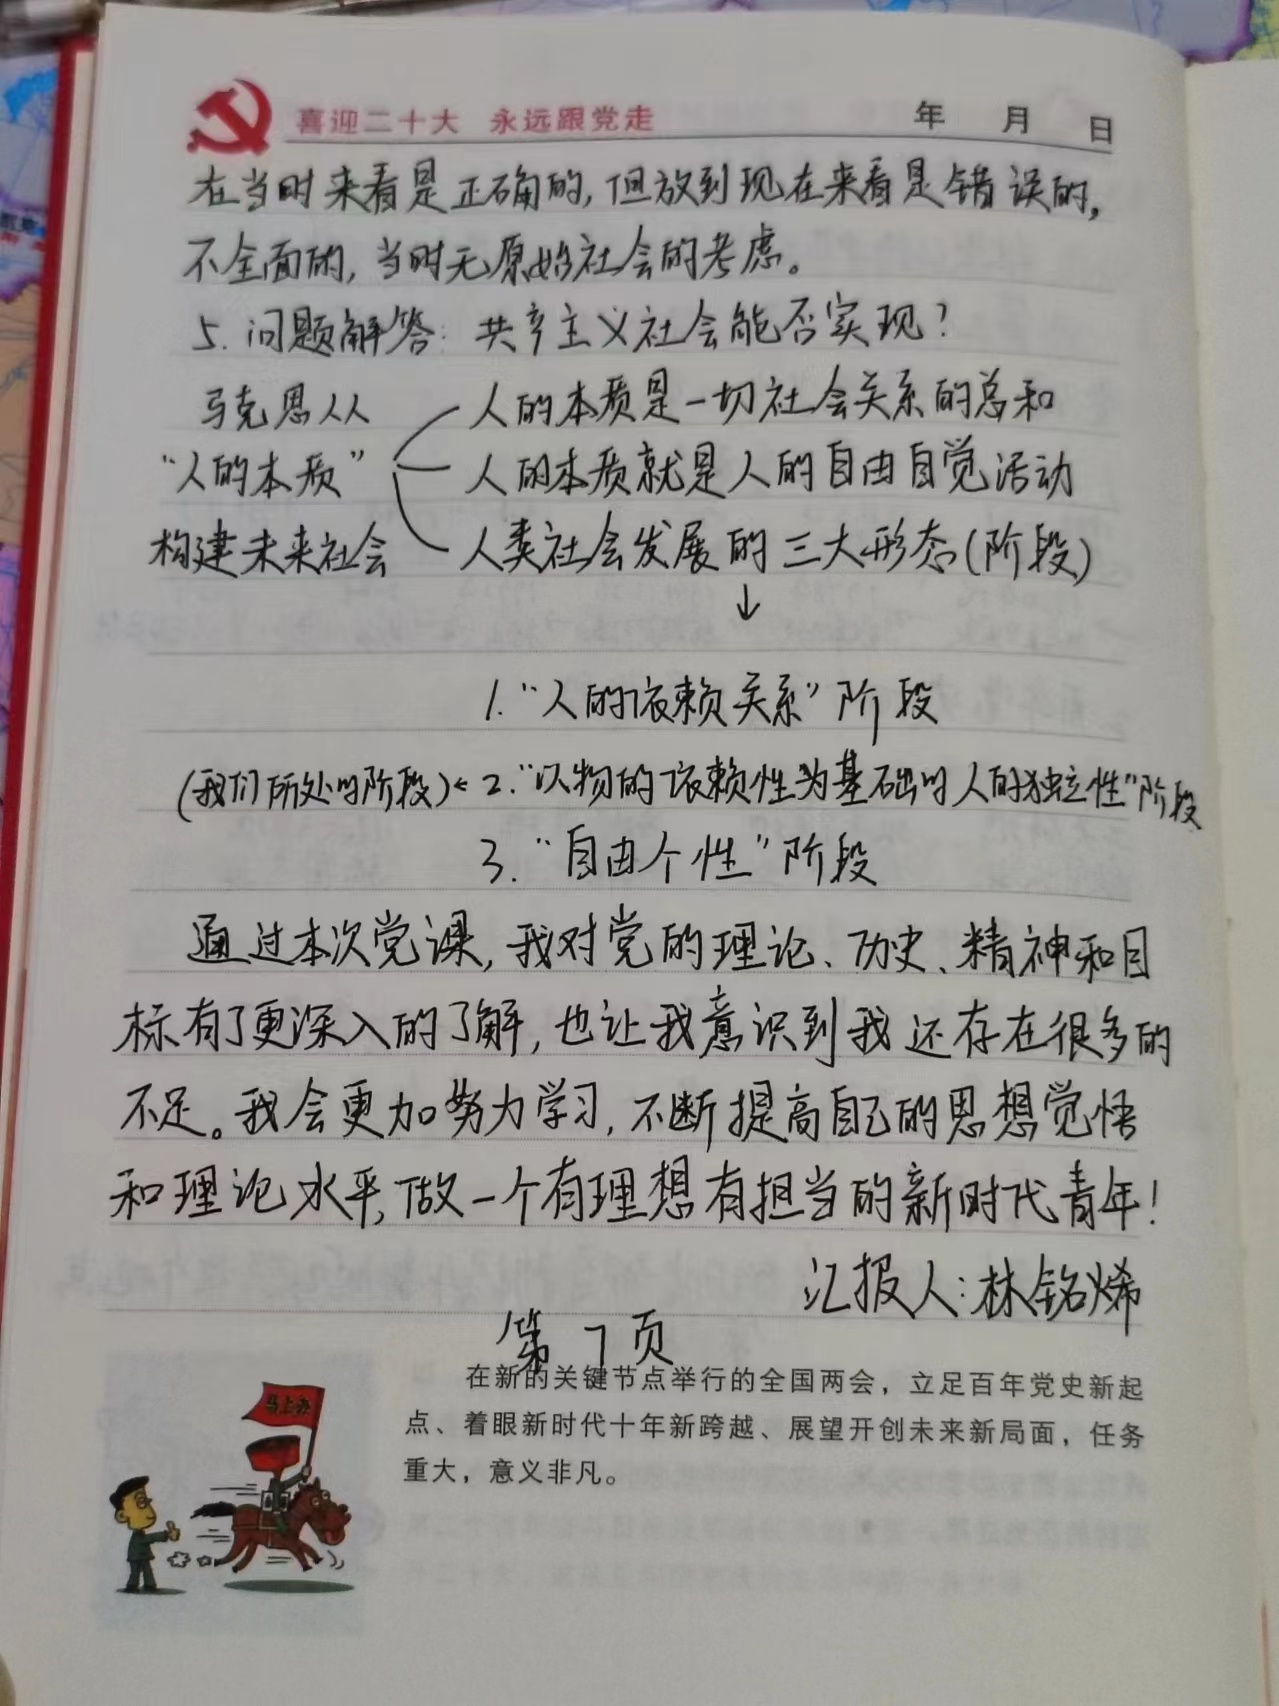 喜迎二十大 永远跟党走 年 月 日
在当时来看是正确的,但放到现在来看是错误的,
不全面的,当时无原始社会的考虑。
5. 问题解答: 共产主义社会能否实现?
马克思从人 人的本质是一切社会关系的总和
“人的本质” 人的本质就是人的自由自觉活动
构建未来社会 人类社会发展的三大形态(阶段)
↓
1.“人的依赖关系”阶段
(我们所处的阶段)← 2.“以物的依赖性为基础的人的独立性”阶段
3.“自由个性”阶段
通过本次党课,我对党的理论、历史、精神和目
标有了更深入的了解,也让我意识到我还存在很多的
不足。我会更加努力学习,不断提高自己的思想觉悟
和理论水平,做一个有理想有担当的新时代青年!
汇报人:林铭烯
第7页
在新的关键节点举行的全国两会,立足百年党史新起
点、着眼新时代十年新跨越、展望开创未来新局面,任务
重大,意义非凡。
马上办